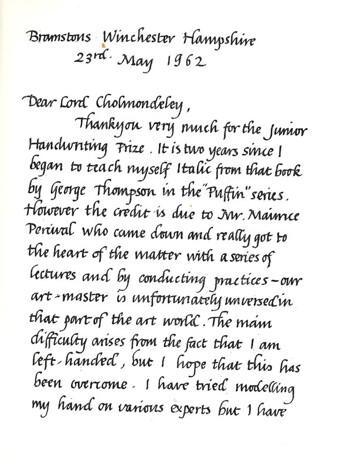 Bramstons Winchester Hampshire
23rd. May 1962
Dear Lord Cholmondeley,
Thankyou very much for the Junior
Handwriting Prize. It is two years since I
began to teach myself Italic from that book
by George Thompson in the "Puffin" series.
However the credit is due to Mr. Maurice
Perival who came down and really got to
the heart of the matter with a series of
lectures and by conducting practices - our
art-master is unfortunately unversed in
that part of the art world. The main
difficulty arises from the fact that I am
left-handed, but I hope that this has
been overcome. I have tried modelling
my hand on various experts but I have